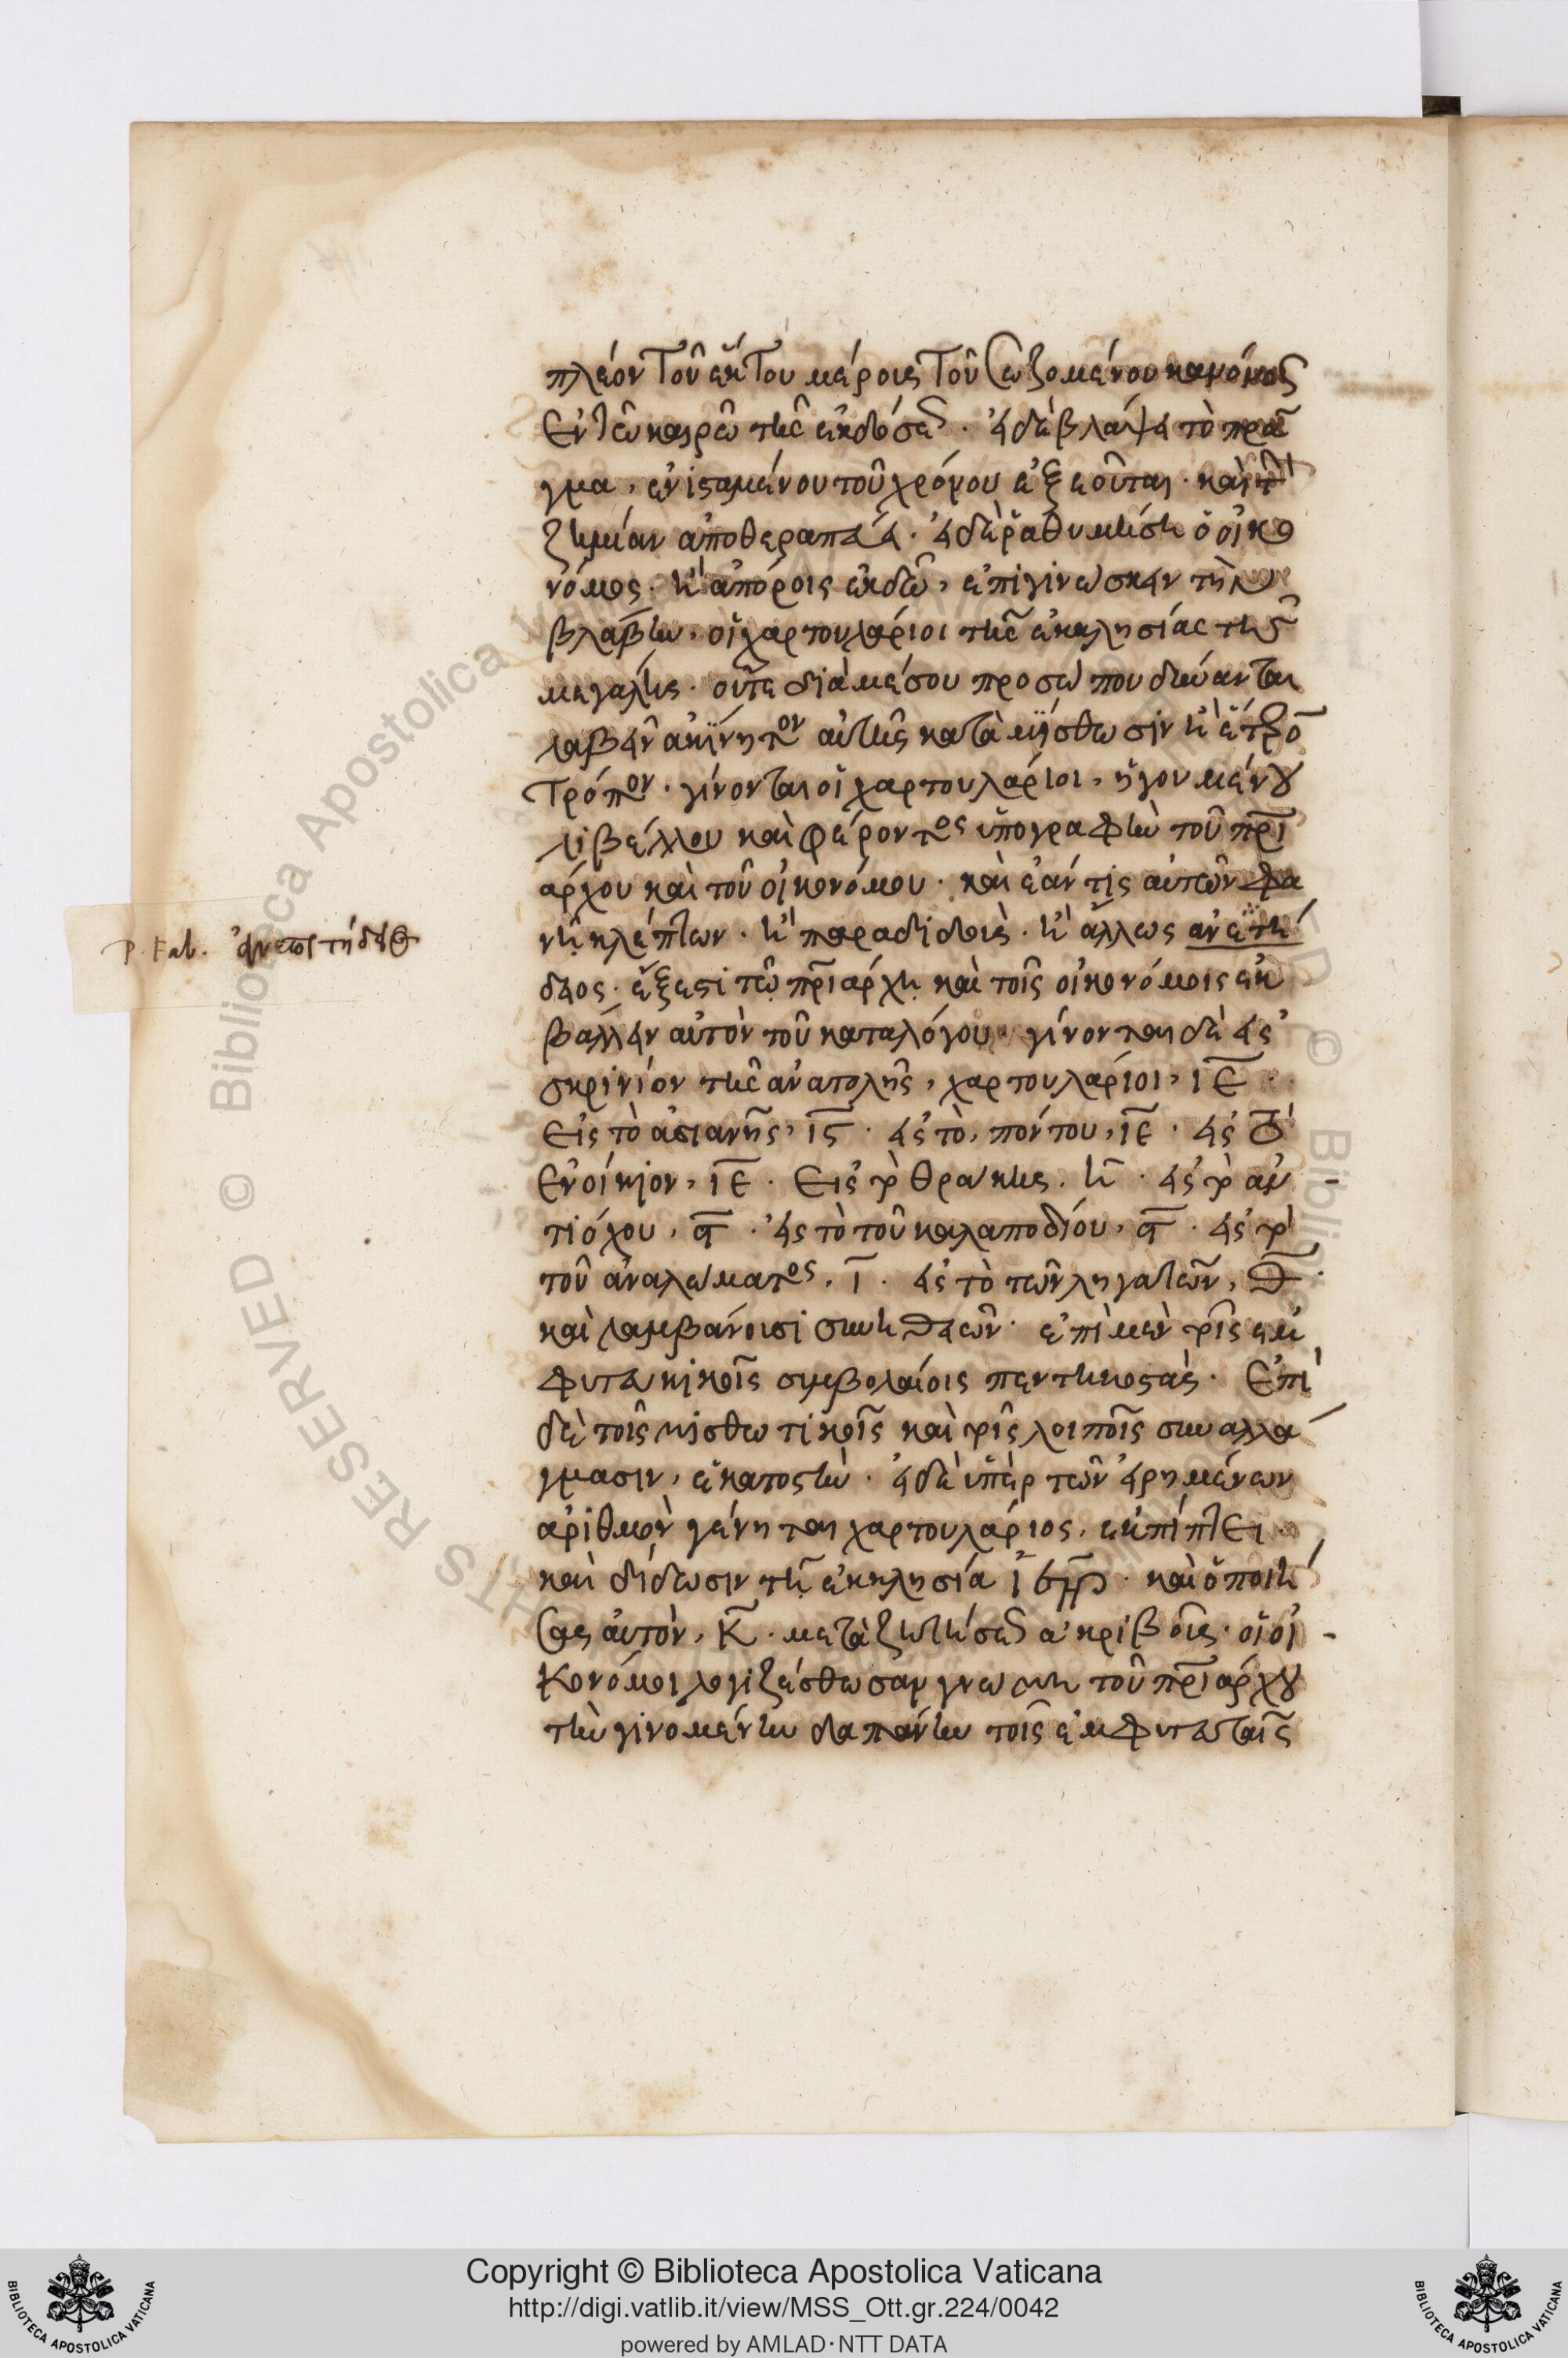 πλέον τοῦ ἕκτου μέρους τοῦ σωζομένου κανόνος
ἐν τῶ καιρῶ τῆς ἐκδόσεως. εἰ δὲ βλάψει τὸ πρᾶ
γμα, ἐνισταμένου τοῦ χρόνου ἐξεοῦται. καὶ τὴν
ζημίαν ἀποθεραπεύει. εἰ δὲ ῥαθυμήση ὁ οἰκο
νόμος. ἢ ἀπόροις ἐκδῶ, ἐπιγινώσκειν τὴν
βλάβην. οἱ χαρτουλάριοι τῆς ἐκκλησίας τῆς
μεγάλης. οὔτε διὰ μέσου προσώπου δύνανται
λαβεῖν ἀκίνητον αὐτῆς κατὰ μίσθωσιν ἢ ἕτερον
τρόπον. γίνονται οἱ χαρτουλάριοι, ἡγουμένου
λιβέλλου καὶ φέροντος ὑπογραφὴν τοῦ πρι
άρχου καὶ τοῦ οἰκονόμου. καὶ ἐάν τις αὐτῶν φα
νῆ κλέπτων. ἢ παραδιδοὺς. ἢ ἄλλως ἀνεπιτή
δειος. ἔξεστι τῶ πριάρχη καὶ τοῖς οἰκονόμοις ἐκ
βάλλειν αὐτὸν τοῦ καταλόγου. γίνονται δὲ εἰς
σκρινίον τῆς ἀνατολῆς, χαρτουλάριοι, ιε.
εἰς τὸ ἀσιανῆς, ις. εἰς τὸ, πόντου, ιε. εἰς τὸ
ἐνοίκιον, ιε. εἰς τὸ θράκης. η. εἰς τὸ ἀν
τιόχου, ϟ. εἰς τὸ τοῦ καλαποδίου, ϟ. εἰς τὸ
τοῦ ἀναλώματος, ι. εἰς τὸ τῶν ληγατῶν, θ.
καὶ λαμβάνουσι συνηθειῶν. ἐπὶ μὲν τοῖς ἐμ
φυτευτικοῖς συμβολαίοις πεντηκοστὰς. ἐπὶ
δὲ τοῖς μισθωτικοῖς καὶ τοῖς λοιποῖς συναλλά
γμασιν, ἑκατοστὴν. εἰ δὲ ὑπὲρ τῶν εἰρημένων
ἀριθμὸν γένηται χαρτουλάριος, ἐκπίπτει
καὶ δίδωσιν τῆ ἐκκλησία ι. καὶ ὁ ποιή
σας αὐτὸν, κ. μετὰ ζητήσεως ἀκριβοῦς. οἱ οἰ
κονόμοι λογιζέσθωσαν γνώμη τοῦ πριάρχου
τὴν γινομένην δαπάνην τοῖς ἐμφυτευταῖς
P. Fab.
Copyright © Biblioteca Apostolica Vaticana
http://digi.vatlib.it/view/MSS_Ott.gr.224/0042
powered by AMLAD·NTT DATA